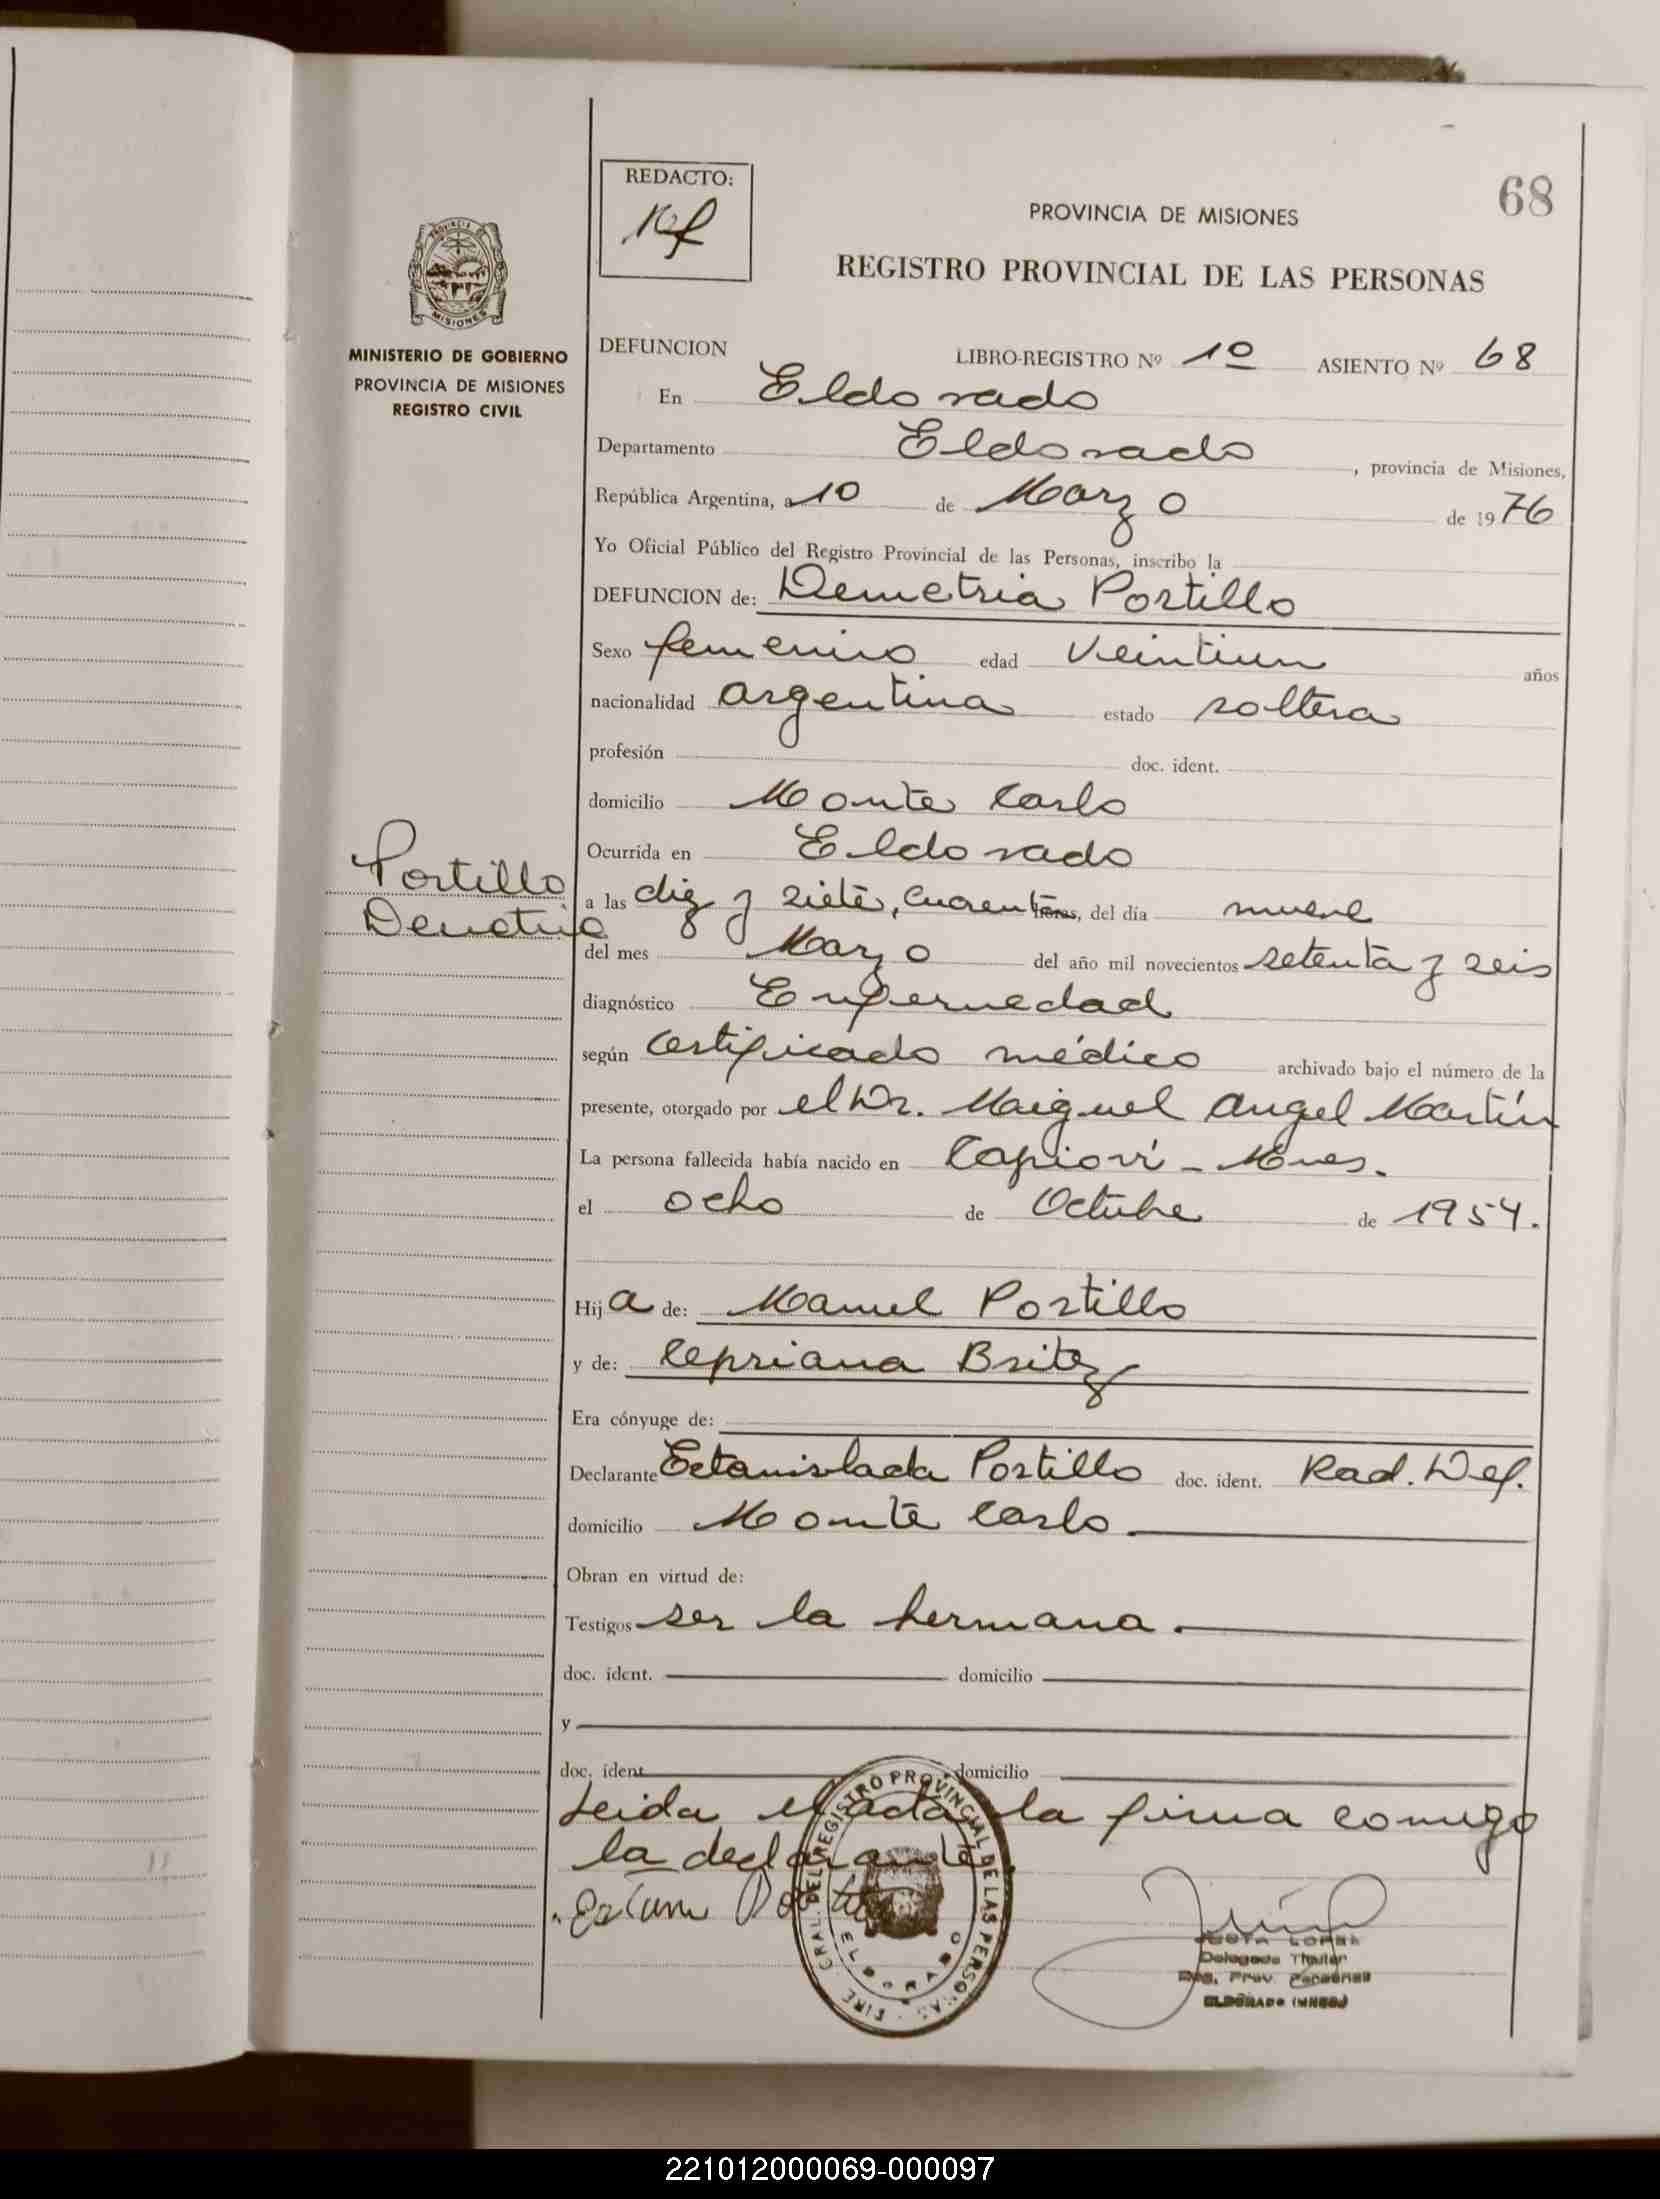 REDACTO:
68
PROVINCIA DE MISIONES
REGISTRO PROVINCIAL DE LAS PERSONAS
MISIONES
MINISTERIO DE GOBIERNO
PROVINCIA DE MISIONES
REGISTRO CIVIL
DEFUNCION LIBRO-REGISTRO Nº 10 ASIENTO Nº 68
En Eldorado
Departamento Eldorado, provincia de Misiones,
República Argentina, a 10 de Marzo de 1976
Yo Oficial Público del Registro Provincial de las Personas, inscribo la
DEFUNCION de: Demetria Portillo
Sexo femenino edad veintiun años
nacionalidad argentina estado soltera
profesión doc. ident.
domicilio Monte Carlo
Ocurrida en Eldorado
Portillo
Demetria
a las diez y siete, cuarenta horas, del día nueve
del mes Marzo del año mil novecientos setenta y seis
diagnóstico Enfermedad
según certificado médico archivado bajo el número de la
presente, otorgado por el Dr. Maiguel Angel Martín
La persona fallecida había nacido en Capioví - Mnes.
el ocho de Octubre de 1954.
Hija de: Manuel Portillo
y de: Cepriana Britez
Era cónyuge de:
Declarante Estanislada Portillo doc. ident. Rad. Def.
domicilio Monte Carlo
Obran en virtud de:
Testigos ser la hermana.
doc. ident. domicilio
y
doc. ident. domicilio
Leida el acta, la firma comigo
la declarante
GRAL. DEL REGISTRO PROVINCIAL DE LAS PERSONAS
ELDORADO
LOPEZ
Delegado Titular
Reg. Prov. Personas
ELDORADO (MNES)
221012000069-000097